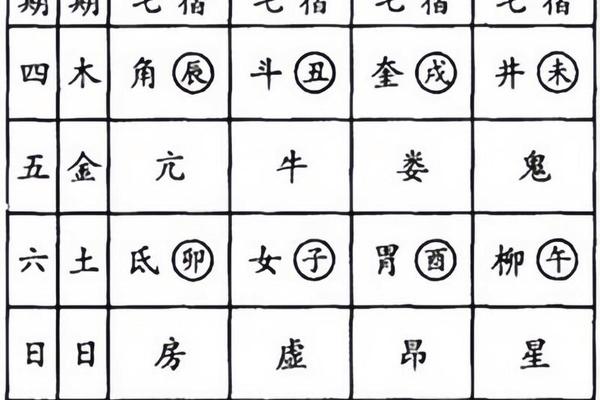 期 期 七 宿 七 宿 七 宿 七 宿
四 木 角 辰 斗 丑 奎 戌 井 未
五 金 亢 牛 娄 鬼
六 土 氐 卯 女 子 胃 酉 柳 午
日 日 房 虚 昂 星